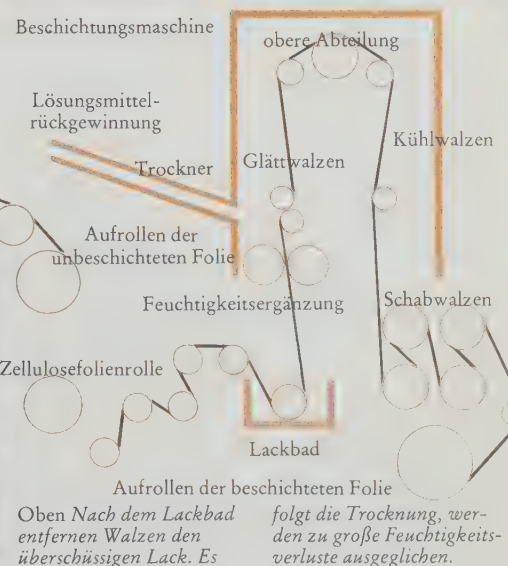 Beschichtungsmaschine
obere Abteilung
Lösungsmittel-
rückgewinnung
Kühlwalzen
Trockner
Glättwalzen
Aufrollen der
unbeschichteten Folie
Feuchtigkeitsergänzung
Schabwalzen
Zellulosefolienrolle
Lackbad
Aufrollen der beschichteten Folie
Oben Nach dem Lackbad
entfernen Walzen den
überschüssigen Lack. Es
folgt die Trocknung, wer-
den zu große Feuchtigkeits-
verluste ausgeglichen.